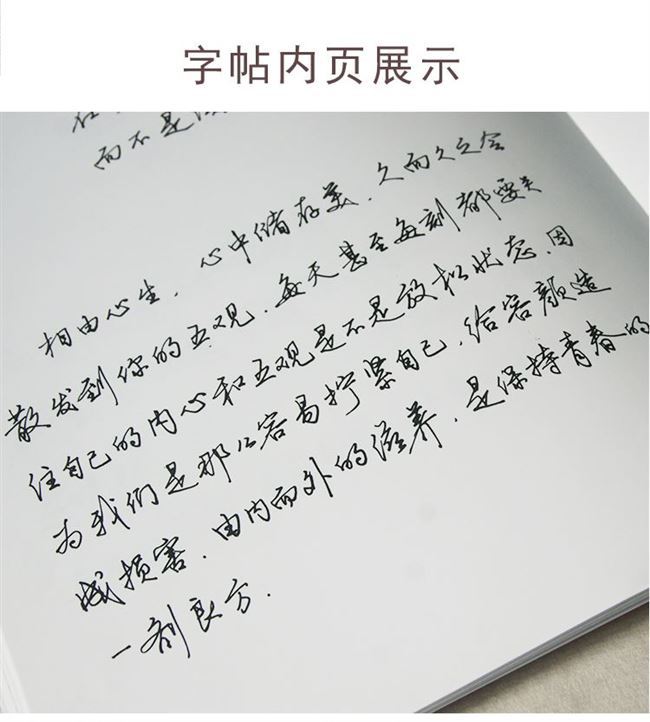 字帖内页展示
而不是
相由心生,心中储存美,久而久之会
散发到你的五观,每天甚至每刻都要关
住自己的内心和五观是不是放松状态,因
为我们是那么容易拧紧自己,给容颜造
成损害,由内而外的滋养,是保持青春的
一剂良方.